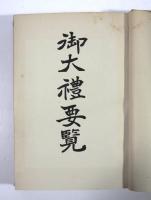 御大禮要覽